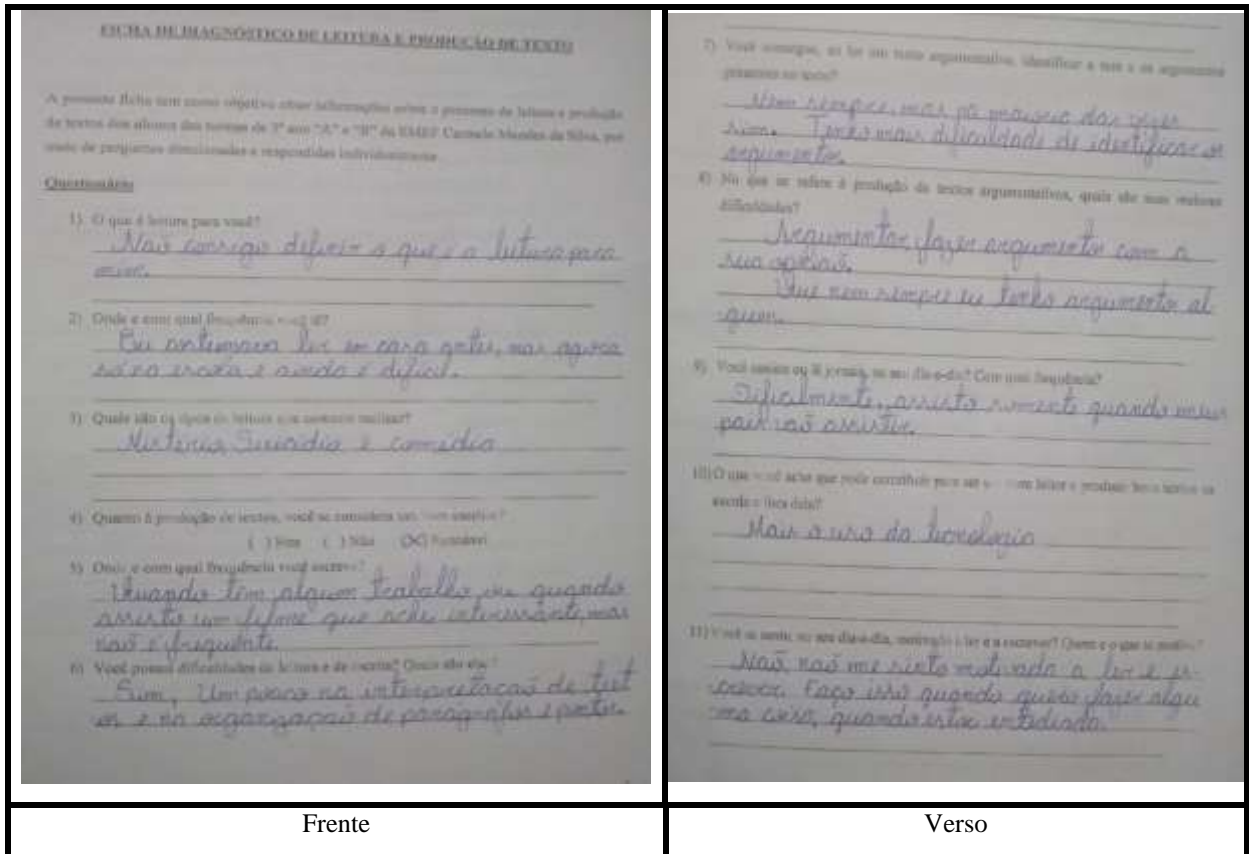 FICHA DE DIAGNÓSTICO DE LEITURA E PRODUÇÃO DE TEXTO
A presente ficha tem como objetivo obter informações sobre o processo de leitura e produção
de textos dos alunos das turmas de "A" e "B" da EMEF Mendes da Silva, por
meio de perguntas direcionadas e respondidas individualmente.
Questionário
1) O que é leitura para você?
Não consigo definir o que é a leitura para
mim.
2) Onde e com qual frequência você lê?
Eu ler em casa antes, mas agora
só na escola e ainda é difícil.
3) Quais são os tipos de leitura que costuma realizar?
e comédia
4) Quanto à produção de textos, você se considera um bom escritor?
( ) Sim ( ) Não (X) Razoável
5) Onde e com qual frequência você escreve?
Quando tem algum trabalho, ou quando
assisto um filme que acho interessante, mas
naõ é frequente.
6) Você possui dificuldades de leitura e de escrita? Quais são elas?
Sim, Um pouco na interpretaçaõ de text
os e na organizaçaõ de paragrafos e pontos.
Frente
7) Você consegue, ao ler um texto argumentativo, identificar a tese e os argumentos
presentes no texto?
Nem sempre, mas na maioria das vezes
sim. Tenho mais dificuldade de identificar os
argumentos.
8) No que se refere à produção de textos argumentativos, quais são suas maiores
dificuldades?
Argumentar, fazer argumentos com a
sua opiniaõ.
Que nem sempre eu tenho argumento al
gum.
9) Você assiste ou lê jornais, no seu dia-a-dia? Com qual frequência?
Dificilmente, assisto somente quando meus
pais vaõ assistir.
10) O que você acha que pode contribuir para ser um bom leitor e produzir bons textos na
escola e fora dela?
Mais o uso da tecnologia
11) Você se sente, no seu dia-a-dia, motivado a ler e a escrever? Quem e o que te motiva?
Naõ, naõ me sinto motivada a ler e es-
crever. Faço isso quando quero fazer algu
ma coisa, quando estou entediada.
Verso